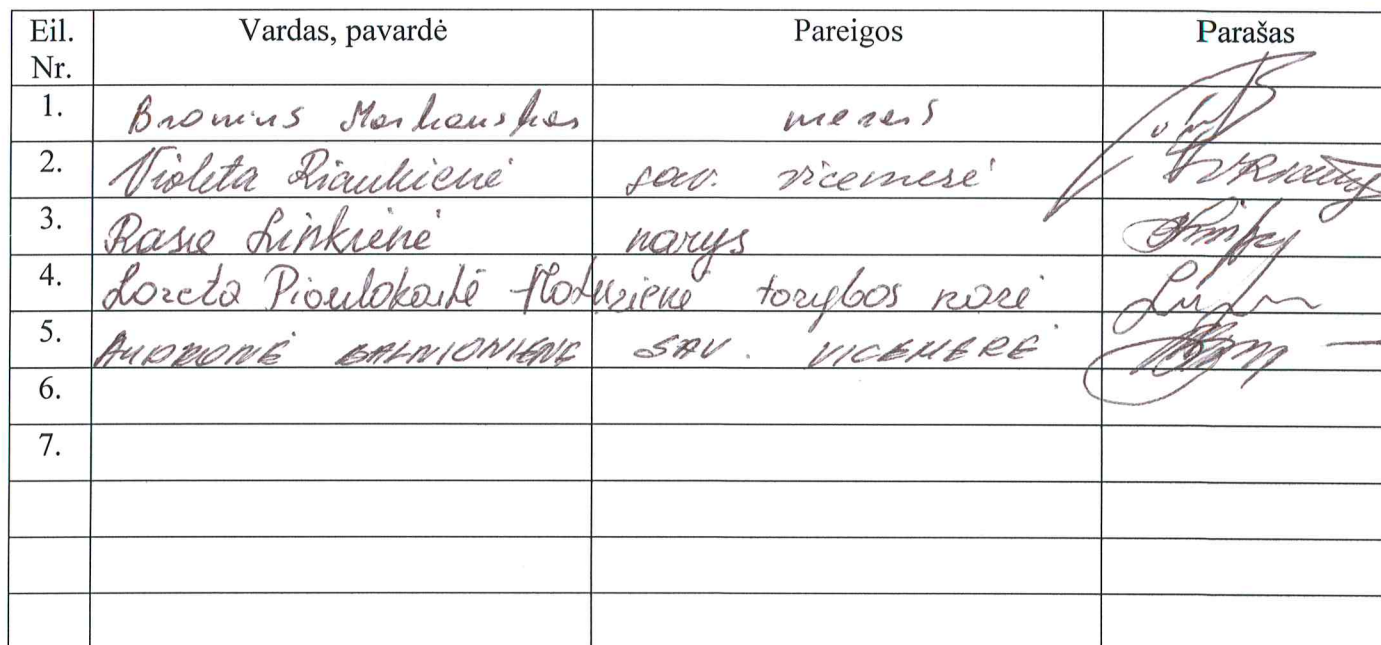 Eil. Nr. Vardas, pavardė Pareigos Parašas
1. Bronius Markauskas meras
2. Violeta Riaukienė sav. vicemerė
3. Rasa Linkienė narys
4. Loreta Piaulokaitė Motuzienė tarybos narė
5. AUDRONĖ BALNIONIENĖ SAV. VICEMERĖ
6.
7.